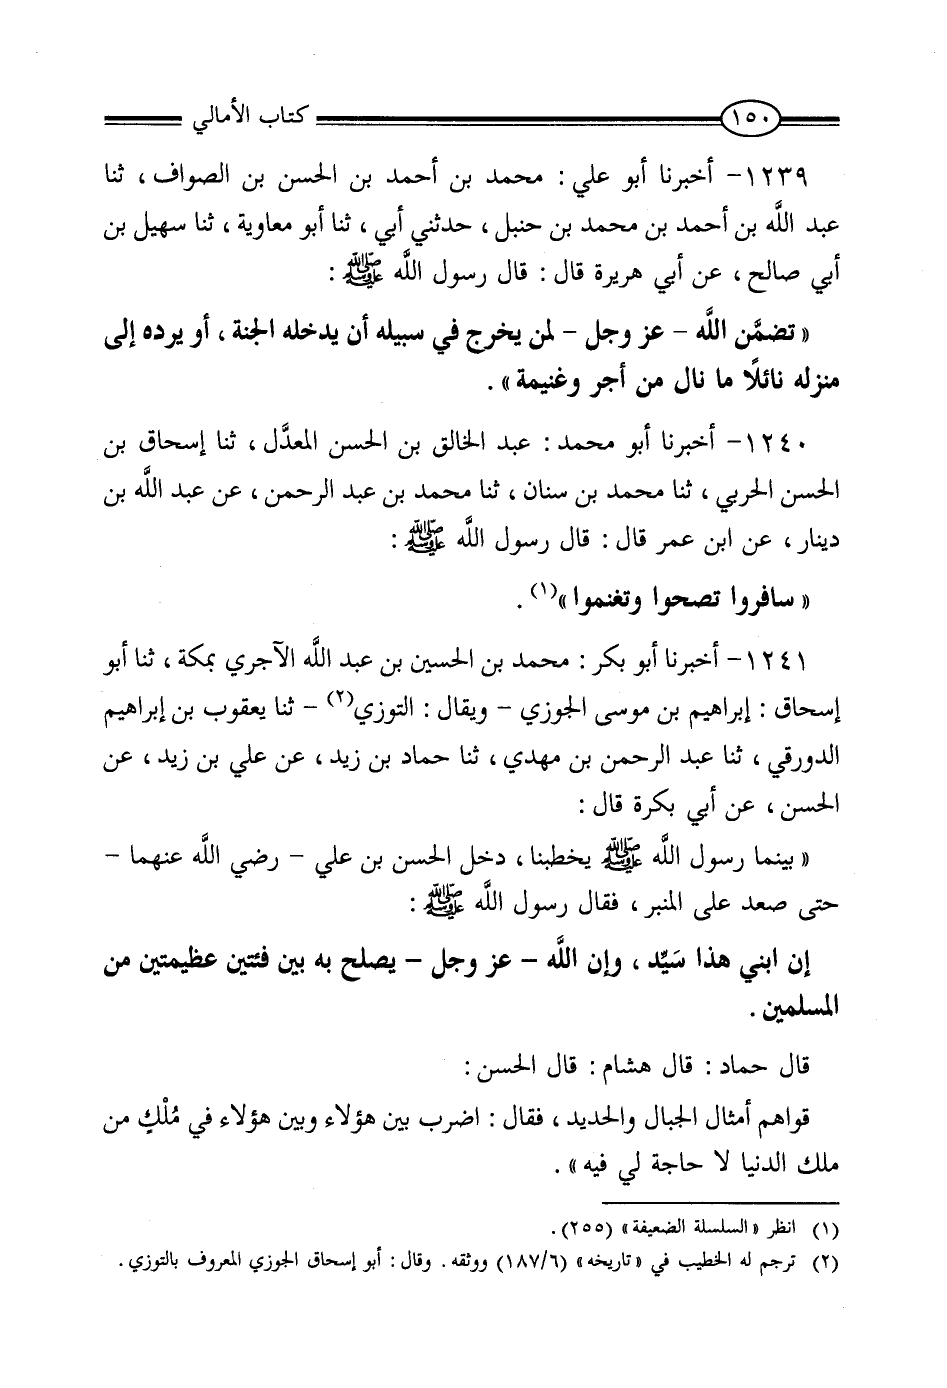 ١٥٠ كتاب الأمالي
١٢٣٩- أخبرنا أبو علي : محمد بن أحمد بن الحسن بن الصواف ، ثنا
عبد اللَّه بن أحمد بن محمد بن حنبل ، حدثني أبي ، ثنا أبو معاوية ، ثنا سهيل بن
أبي صالح ، عن أبي هريرة قال : قال رسول اللَّه ﷺ :
« تضمَّن اللَّه - عز وجل - لمن يخرج في سبيله أن يدخله الجنة ، أو يرده إلى
منزله نائلًا ما نال من أجر وغنيمة » .
١٢٤٠- أخبرنا أبو محمد : عبد الخالق بن الحسن المعدَّل ، ثنا إسحاق بن
الحسن الحربي ، ثنا محمد بن سنان ، ثنا محمد بن عبد الرحمن ، عن عبد اللَّه بن
دينار ، عن ابن عمر قال : قال رسول اللَّه ﷺ :
« سافروا تصحوا وتغنموا »(١) .
١٢٤١- أخبرنا أبو بكر : محمد بن الحسين بن عبد اللَّه الآجري بمكة ، ثنا أبو
إسحاق : إبراهيم بن موسى الجوزي - ويقال : التوزي(٢) - ثنا يعقوب بن إبراهيم
الدورقي ، ثنا عبد الرحمن بن مهدي ، ثنا حماد بن زيد ، عن علي بن زيد ، عن
الحسن ، عن أبي بكرة قال :
« بينما رسول اللَّه ﷺ يخطبنا ، دخل الحسن بن علي - رضي اللَّه عنهما -
حتى صعد على المنبر ، فقال رسول اللَّه ﷺ :
إن ابني هذا سَيِّد ، وإن اللَّه - عز وجل - يصلح به بين فئتين عظيمتين من
المسلمين .
قال حماد : قال هشام : قال الحسن :
قواهم أمثال الجبال والحديد ، فقال : اضرب بين هؤلاء وبين هؤلاء في مُلْكٍ من
ملك الدنيا لا حاجة لي فيه » .
(١) انظر « السلسلة الضعيفة » (٢٥٥) .
(٢) ترجم له الخطيب في « تاريخه » (١٨٧/٦) ووثقه . وقال : أبو إسحاق الجوزي المعروف بالتوزي .